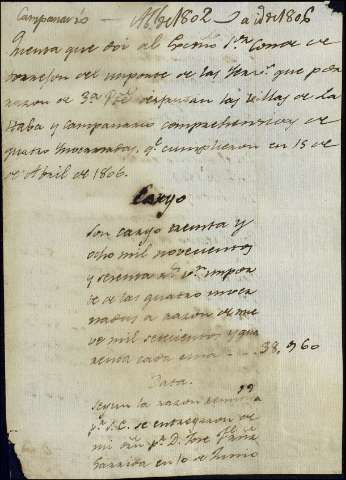 Campanario — Abl. de 1802 — a id de 1806
Cuenta que doi al Excmo Sr. Conde de
del importe de las que por
razon de 3a Pte las villas de la
Haba y Campanario comprehensivas de
quatro Invernadas, q.e cumplieron en 15 de
de Abril de 1806.
Cargo
Son cargo treinta y
ocho mil novecientos
y sesenta r.s v.n impor
te de las quatro inver
nadas a razon de nue
ve mil setecientos y qua
renta cada una - - 38,960
Data.
Segun la razon
p.r S.E. se entregaron de
mi p.r D. Jose
Garrida en 10 de Junio